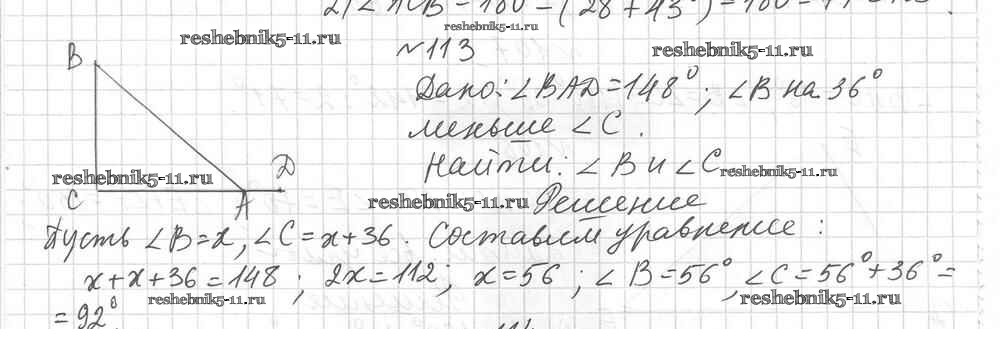 2) ∠ACB = 180 - (28 + 43°) = 180 -
reshebnik5-11.ru
№113
reshebnik5-11.ru
B
Дано: ∠BAD = 148°; ∠B на 36°
меньше ∠C.
Найти: ∠B и ∠C
reshebnik5-11.ru
reshebnik5-11.ru
D
C
A
reshebnik5-11.ru
Решение
Пусть ∠B = x, ∠C = x + 36. Составлем уравнение:
x + x + 36 = 148; 2x = 112; x = 56; ∠B = 56° ∠C = 56° + 36° =
reshebnik5-11.ru
reshebnik5-11.ru
= 92°